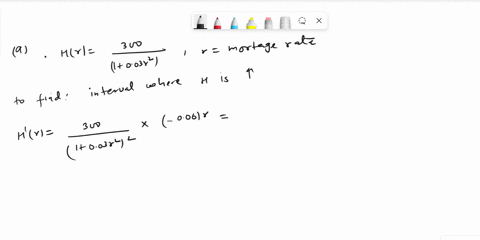 (a). H(r) = 300 / (1+0.03r²) , r = mortage rate
to find: interval where H is ↑
H'(r) = 300 / (1+0.03r²)² × (-0.06)r =